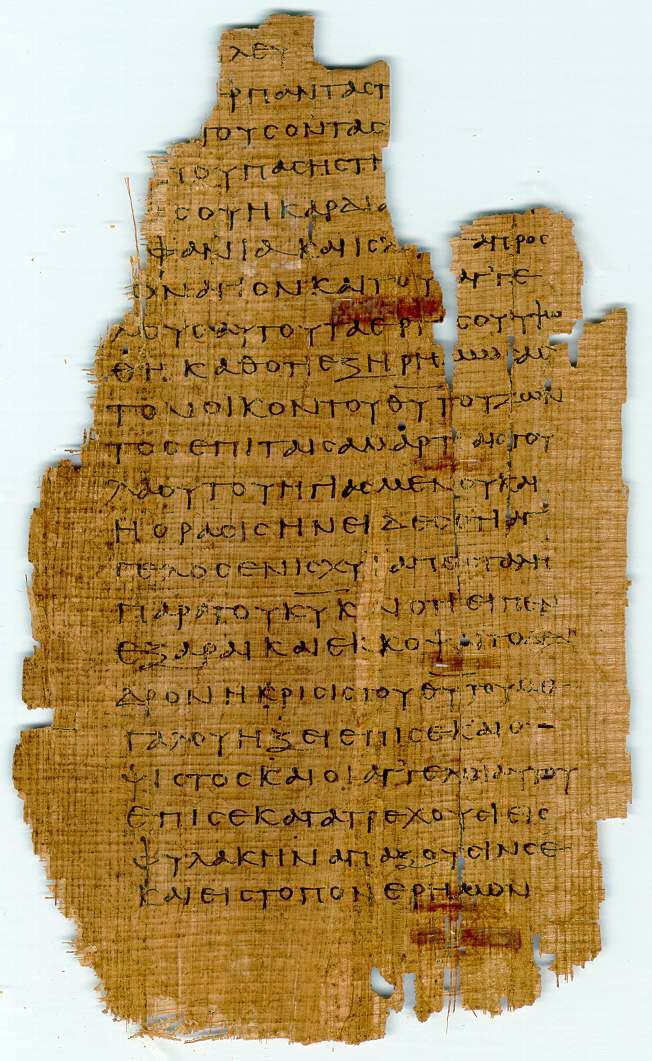 λευ
ρπανταστ
τουσοντας
ουπασηςτη
σουηκαρδια
φανιακαιισχ απρος
τοναγιονκαιτουσ αγγε
λουσαυτουταεργ σουωφ
θηκαθοτιεξηρημωσας
τονοικοντουθυτουζων
τοσεπιταισαμαρτιαιςτου
λαουτουηγιασμενουκαι
ηορασισηνειδεσοτιαγ
γελοσενισχυιαπεσταλη
παρατουκυκαιοτιειπεν
εξαραικαιεκκοψαιτοδεν
δρονηκρισιστουθυτουμε
γαλουηξειεπισεκαιου
ψιστοσκαιοιαγγελοιαυτου
επισεκατατρεχουσιεις
φυλακηναπαξουσινσε
καιειστοπονερημων